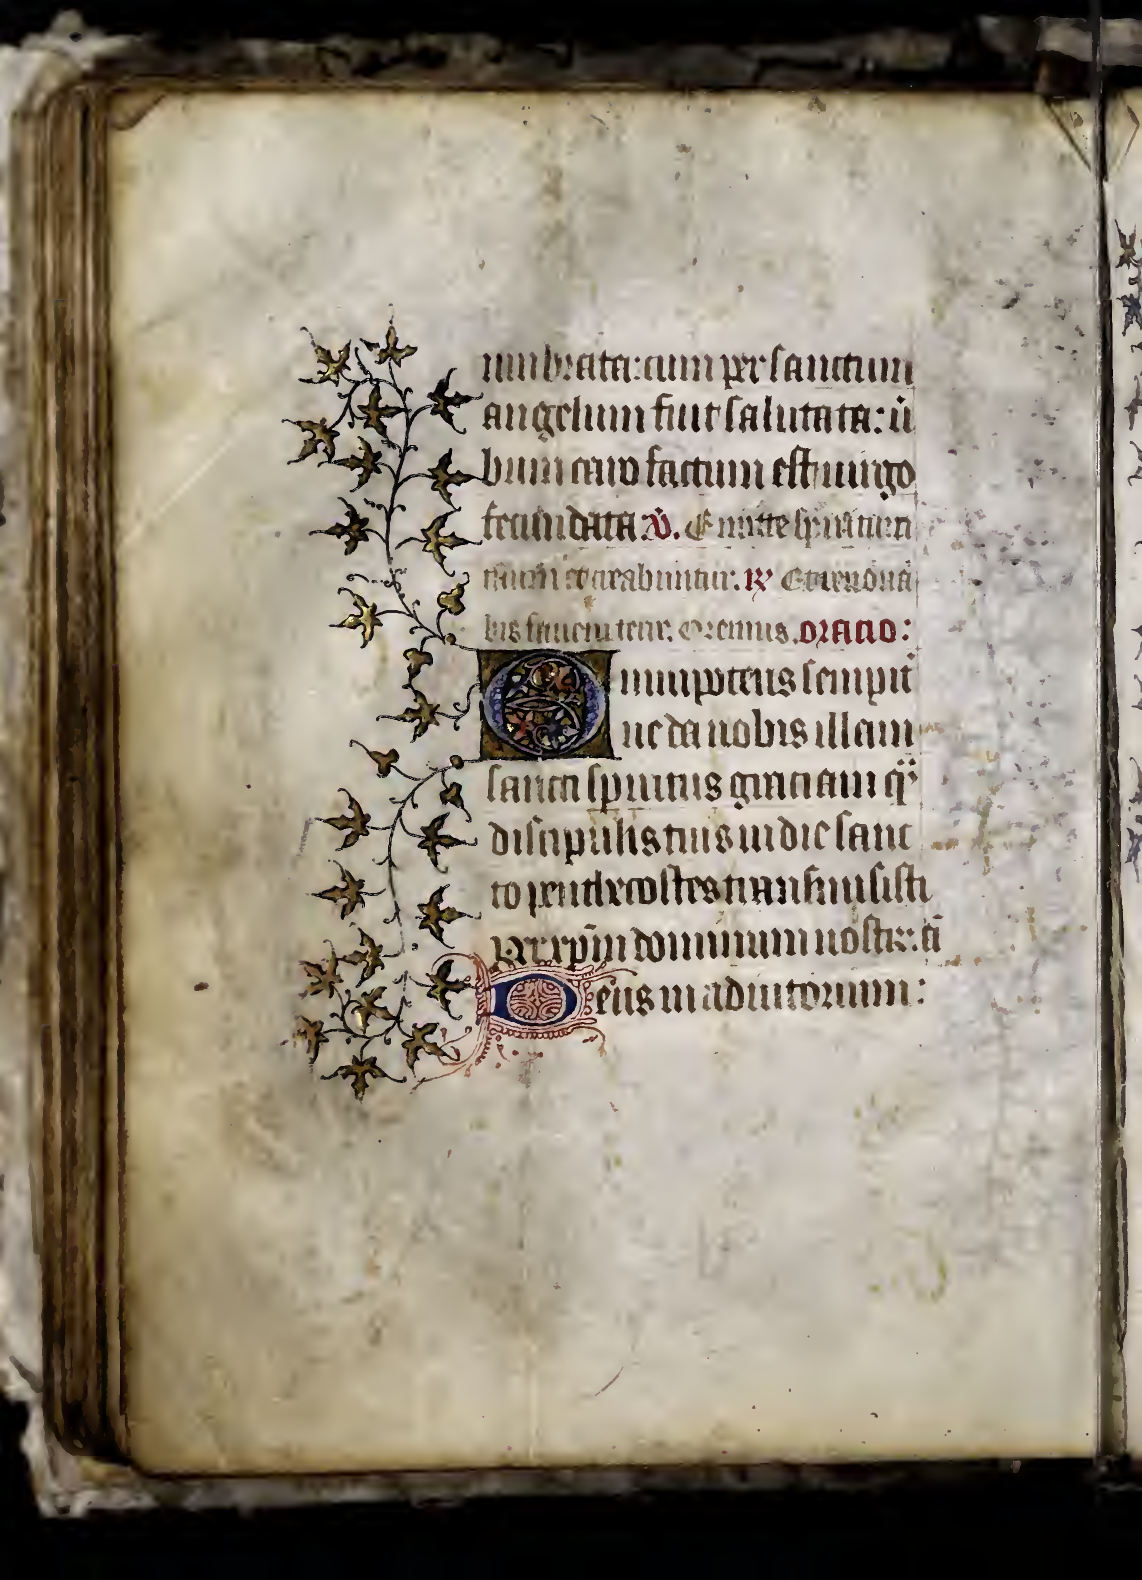 umbrata: cum per sanctum
angelum fuit salutata: ũ
bum caro factum est uirgo
fecundata ℣. Emitte spiritum
tuum et creabuntur. ℟ Et renouã
bis faciem terre. Oremus. oracio:
Omnipotens sempit̾
ne da nobis illam
sancti spiritus graciam q̃
discipulis tuis in die sanc
to penthecostes transmisisti
Per xp̄m dominum nostrum. ã
Deus in adiutorium: